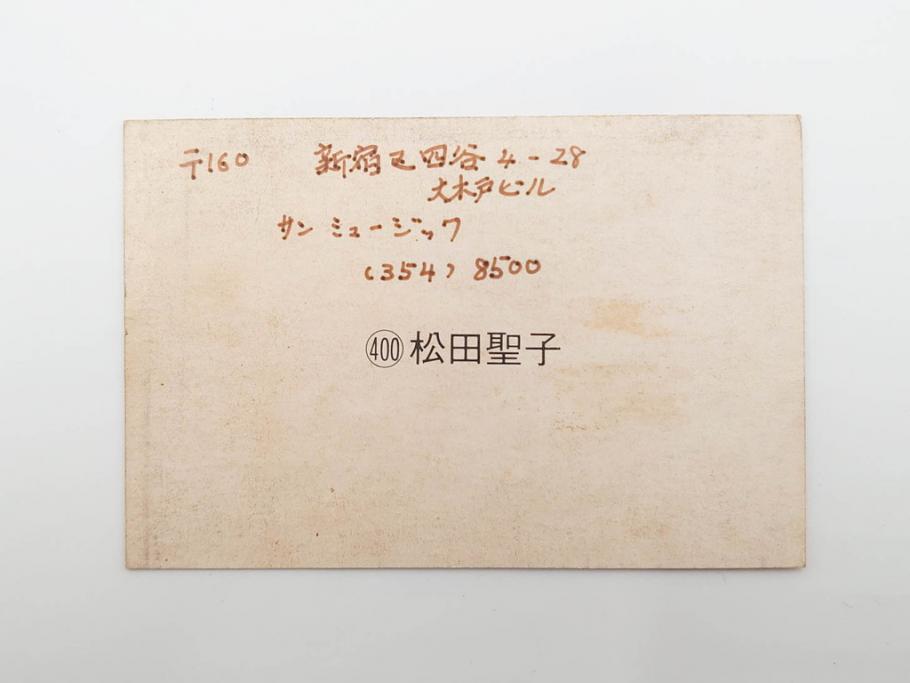 〒160 新宿区四谷4-28
大木戸ビル
サンミュージック
(354) 8500
(400)松田聖子